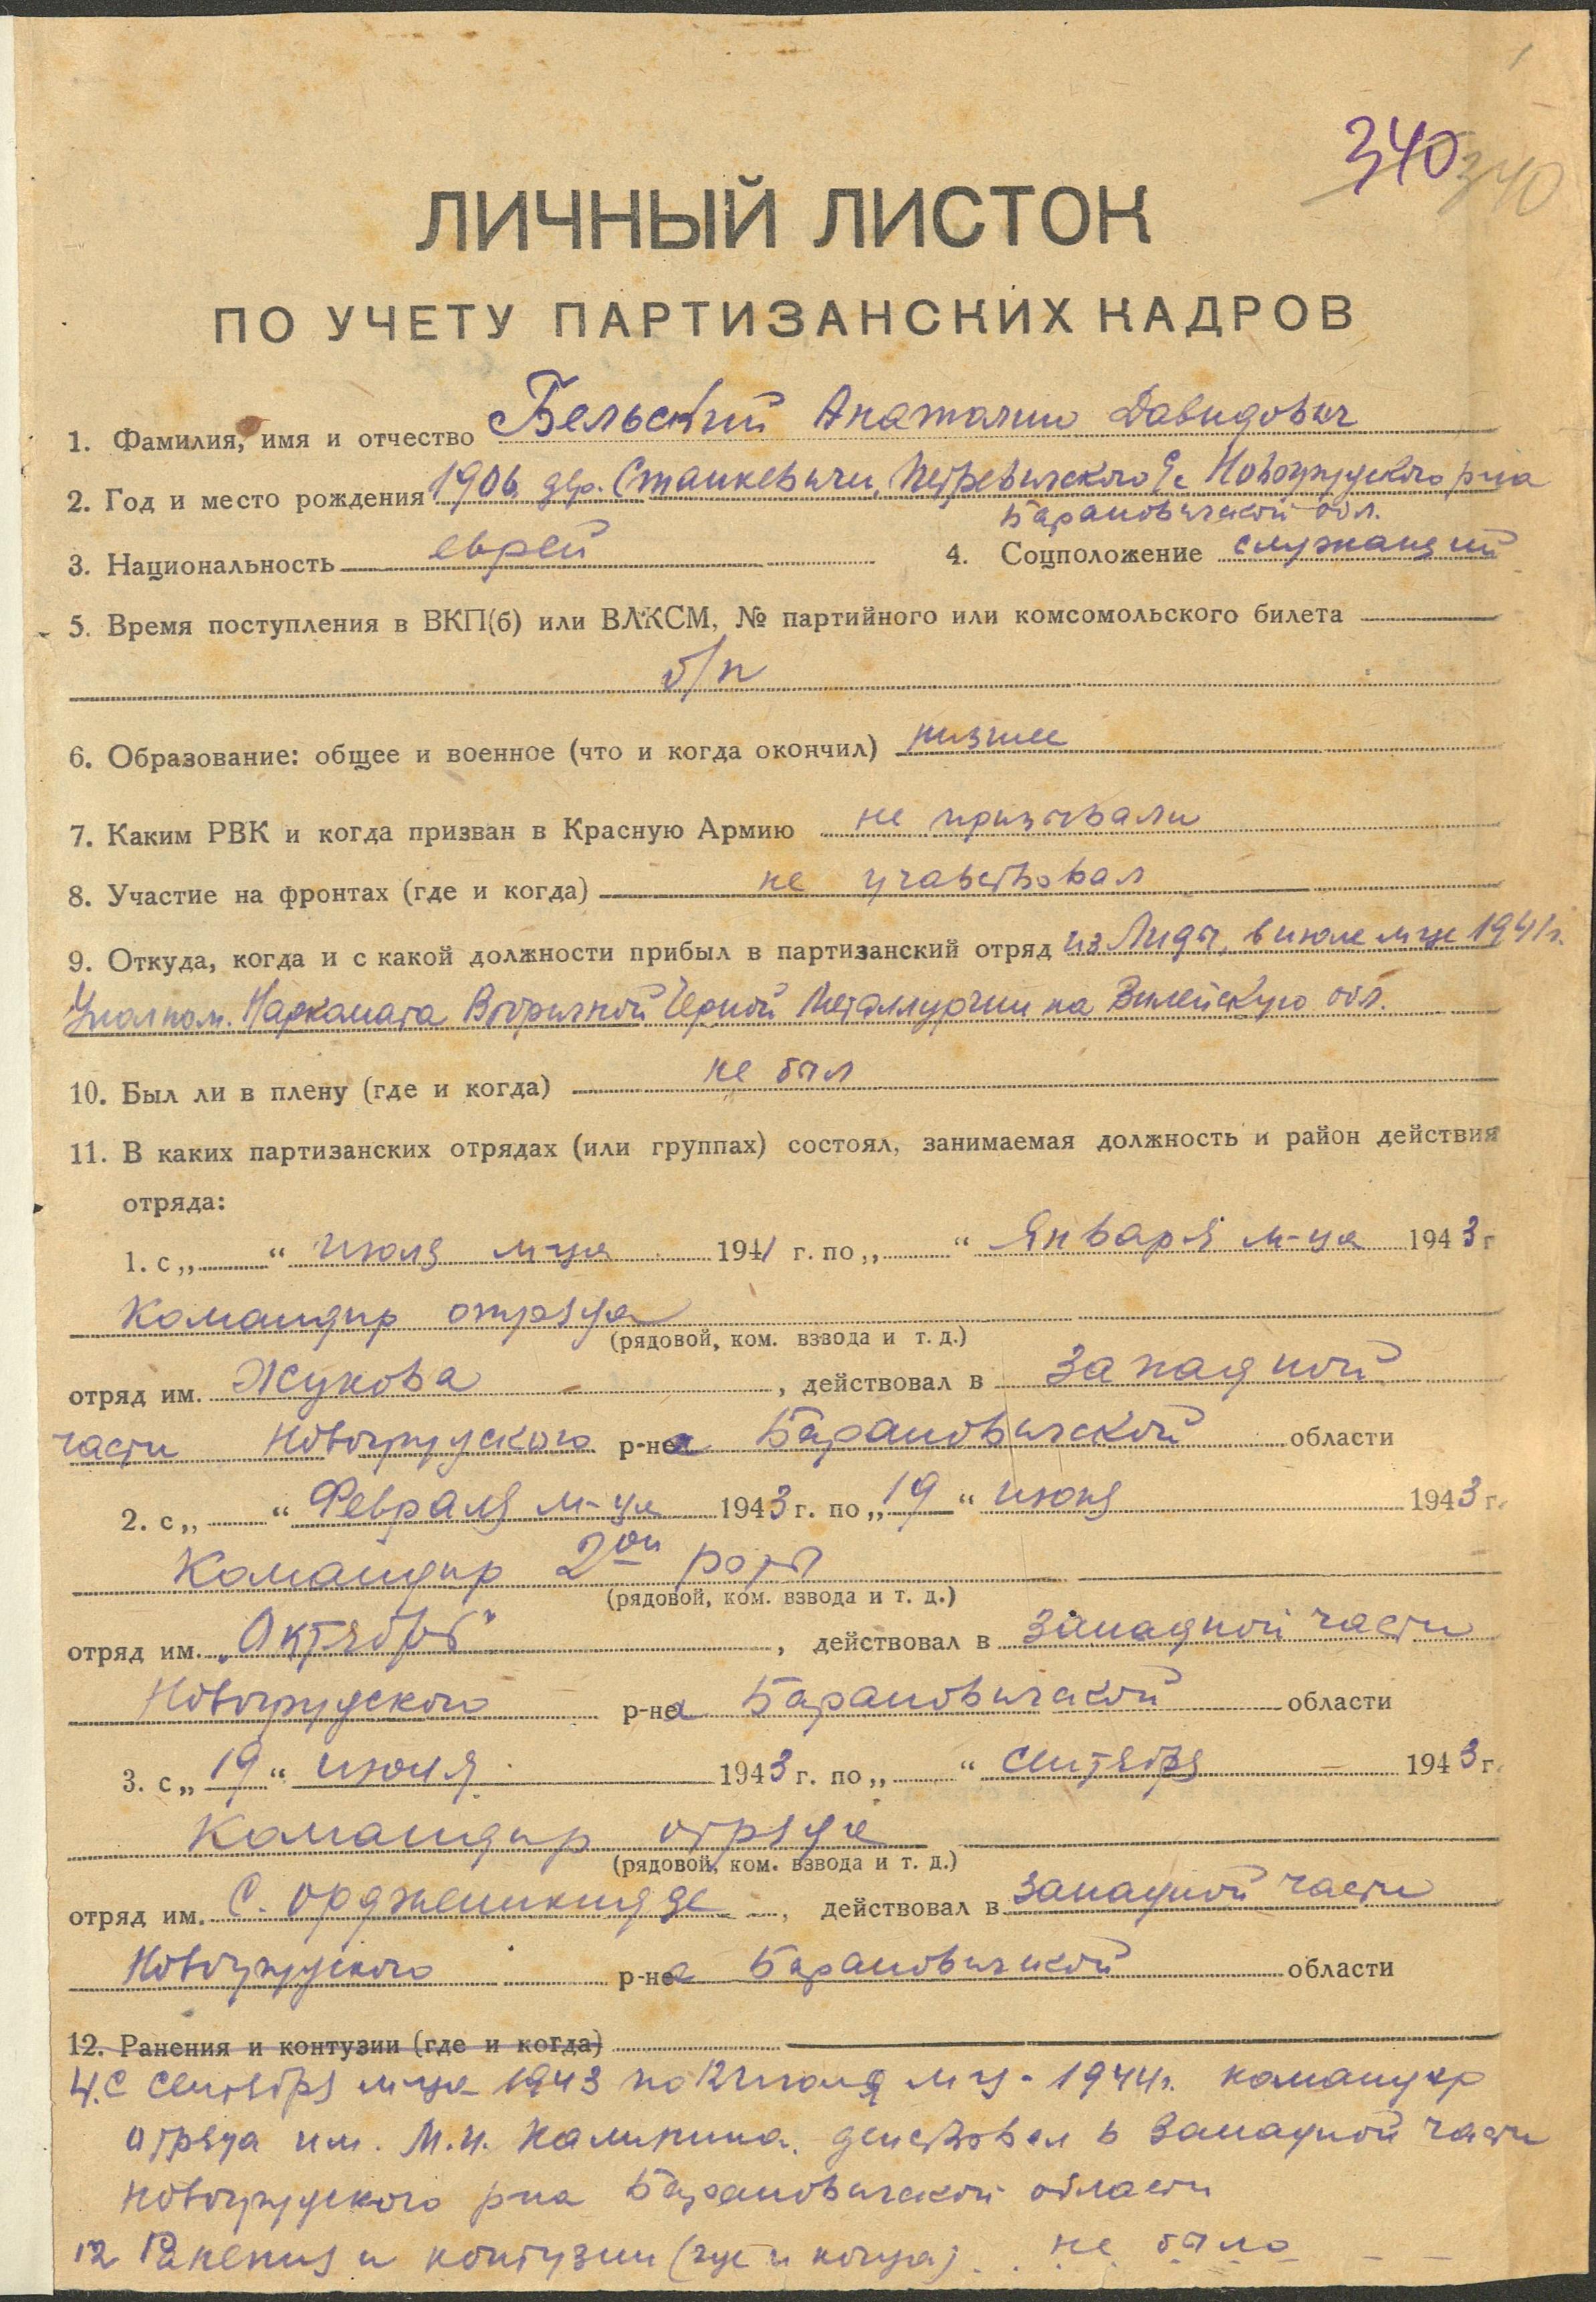 340 340
ЛИЧНЫЙ ЛИСТОК
ПО УЧЕТУ ПАРТИЗАНСКИХ КАДРОВ
1. Фамилия, имя и отчество Бельский Анатолий Давидович
2. Год и место рождения 1906 дер. Станкевичи, Петревичского с/с Новогрудского р-на
Барановичской обл.
3. Национальность еврей 4. Соцположение служащий
5. Время поступления в ВКП(б) или ВЛКСМ, № партийного или комсомольского билета
б/п
6. Образование: общее и военное (что и когда окончил) низшее
7. Каким РВК и когда призван в Красную Армию не призывали
8. Участие на фронтах (где и когда) не участвовал
9. Откуда, когда и с какой должности прибыл в партизанский отряд из Лиды, в июле м-це 1941г.
Уполном. Наркомата Вторичной Черной Металлургии на Вилейскую обл.
10. Был ли в плену (где и когда) не был
11. В каких партизанских отрядах (или группах) состоял, занимаемая должность и район действия
отряда:
1. с „ “ июля м-ца 1941 г. по „ “ Января м-ца 1943 г
Командир отряда
(рядовой, ком. взвода и т. д.)
отряд им. Жукова, действовал в западной
части Новогрудского р-на Барановичской области
2. с „ “ Февраля м-ца 1943 г. по „19“ июня 1943 г.
Командир 2ой роты
(рядовой, ком. взвода и т. д.)
отряд им. „Октябрь“, действовал в западной части
Новогрудского р-на Барановичской области
3. с „19“ июня 1943 г. по „ “ сентября 1943 г.
Командир отряда
(рядовой, ком. взвода и т. д.)
отряд им. С. Орджоникидзе, действовал в западной части
Новогрудского р-на Барановичской области
12. Ранения и контузии (где и когда)
4. С сентября м-ца 1943 по 12 июля м-ц - 1944г. командир
отряда им. М.И. Калинина. действовал в западной части
Новогрудского р-на Барановичской области
12 Ранения и контузии (где и когда) . . не было